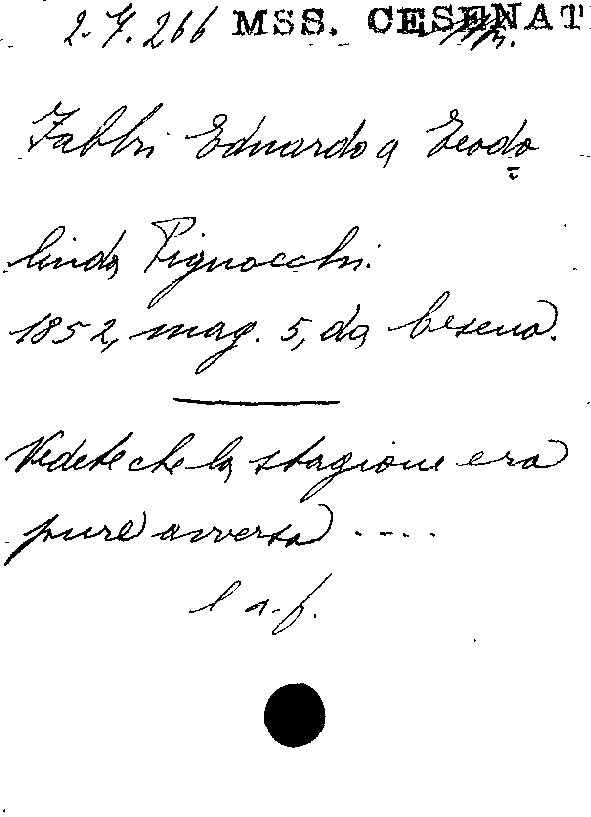 2.7.266 MSS. CESENATI
Fabbri Eduardo a Teodo
linda Pignocchi.
1852, mag. 5, da Cesena.
Vedete che la stagione era
pure avversa ....
l a.f.